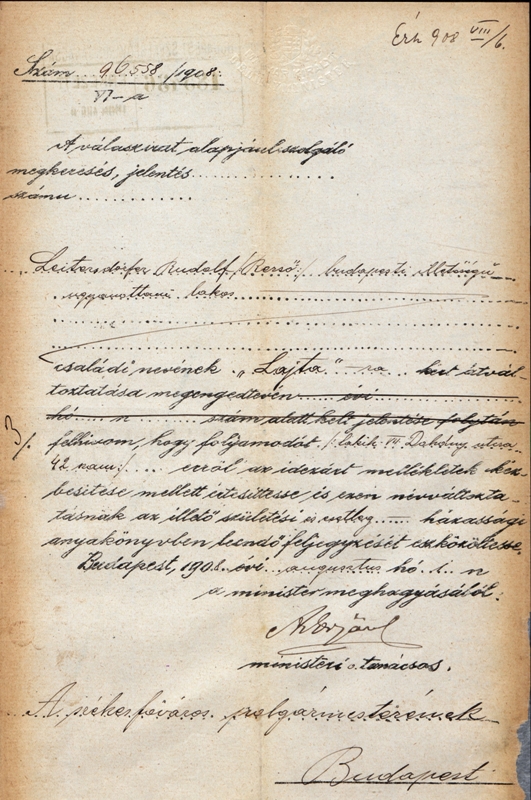 Érk 908 VIII/6.
Szám 96558/1908.
VI-a
A válaszirat alapjául szolgáló
megkeresés, jelentés..........
számu..........
Leitersdorfer Rudolf budapesti illetőségű
ugyanottani lakos
családi nevének „Lajta"-ra kért átvál-
toztatása megengedtetvén évi
hó n szám alatt kelt jelentése folytán
felhivom, hogy folyamodót /: lakik IV Dohány utca
42 szám :/ erről az idezárt mellékletek kéz-
besitése mellett értesittesse és ezen névváltozta-
tásnak az illető születési és esetleg házassági
anyakönyvben leendő feljegyzését eszközöltesse.
Budapest, 1908. évi augusztus hó 1. n
a minister meghagyásából:
ministeri o. tanácsos.
A székesfőváros polgármesterének
Budapest